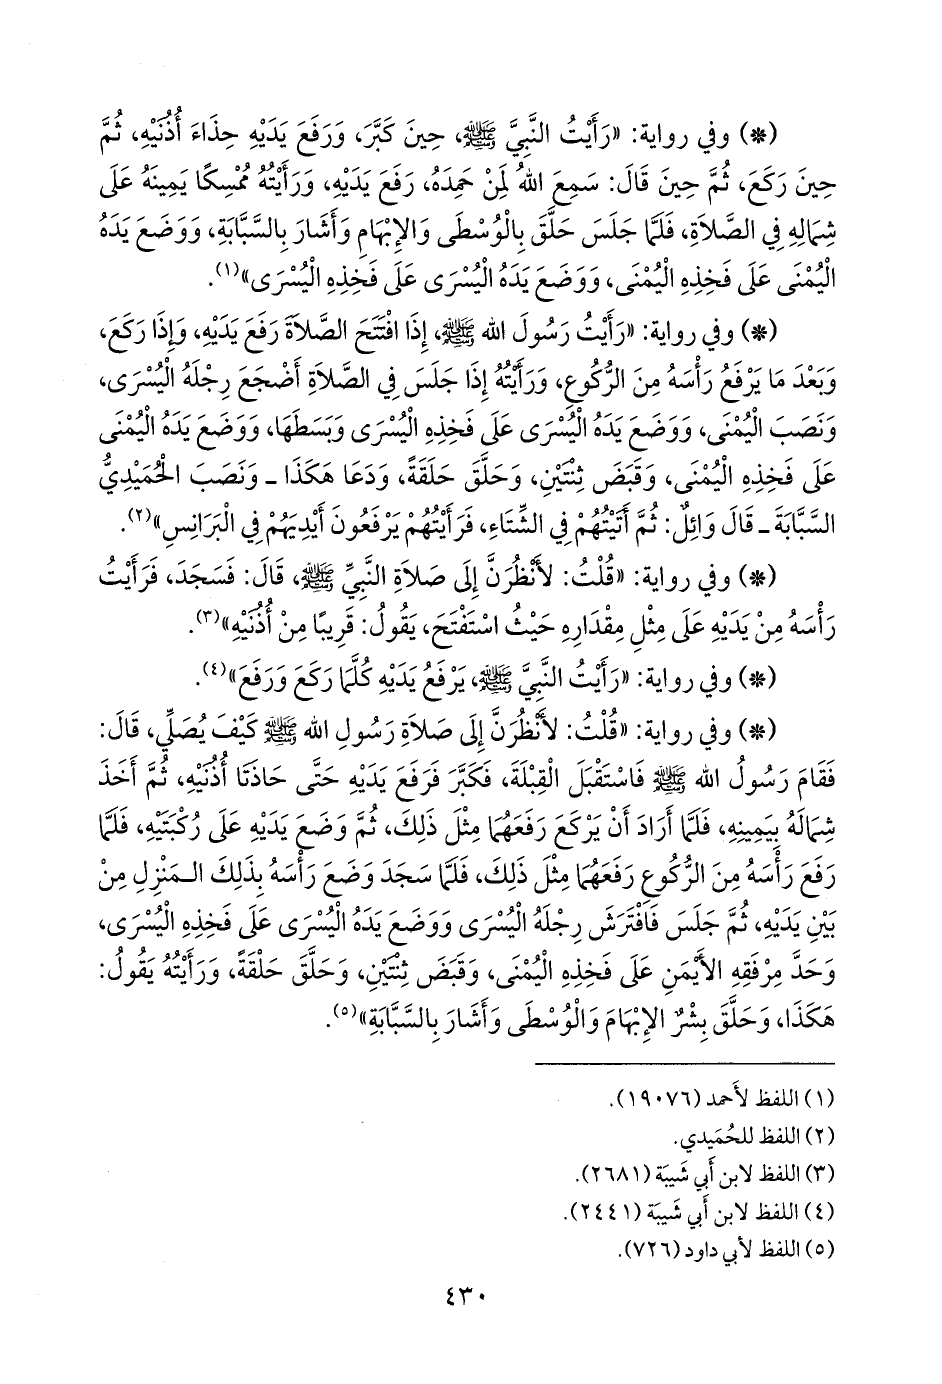 (*) وفي رواية: «رَأَيْتُ النَّبِيَّ ﷺ، حِينَ كَبَّرَ، وَرَفَعَ يَدَيْهِ حِذَاءَ أُذُنَيْهِ، ثُمَّ
حِينَ رَكَعَ، ثُمَّ حِينَ قَالَ: سَمِعَ اللهُ لِمَنْ حَمِدَهُ، رَفَعَ يَدَيْهِ، وَرَأَيْتُهُ مُمْسِكًا يَمِينَهُ عَلَى
شِمَالِهِ فِي الصَّلاَةِ، فَلَمَّا جَلَسَ حَلَّقَ بِالْوُسْطَى وَالإِبْهَامِ وَأَشَارَ بِالسَّبَّابَةِ، وَوَضَعَ يَدَهُ
الْيُمْنَى عَلَى فَخِذِهِ الْيُمْنَى، وَوَضَعَ يَدَهُ الْيُسْرَى عَلَى فَخِذِهِ الْيُسْرَى»(١).
(*) وفي رواية: «رَأَيْتُ رَسُولَ الله ﷺ، إِذَا افْتَتَحَ الصَّلاَةَ رَفَعَ يَدَيْهِ، وَإِذَا رَكَعَ،
وَبَعْدَ مَا يَرْفَعُ رَأْسَهُ مِنَ الرُّكُوعِ، وَرَأَيْتُهُ إِذَا جَلَسَ فِي الصَّلاَةِ أَضْجَعَ رِجْلَهُ الْيُسْرَى،
وَنَصَبَ الْيُمْنَى، وَوَضَعَ يَدَهُ الْيُسْرَى عَلَى فَخِذِهِ الْيُسْرَى وَبَسَطَهَا، وَوَضَعَ يَدَهُ الْيُمْنَى
عَلَى فَخِذِهِ الْيُمْنَى، وَقَبَضَ ثِنْتَيْنِ، وَحَلَّقَ حَلَقَةً، وَدَعَا هَكَذَا ـ وَنَصَبَ الْحُمَيْدِيُّ
السَّبَّابَةَ ـ قَالَ وَائِلٌ: ثُمَّ أَتَيْتُهُمْ فِي الشِّتَاءِ، فَرَأَيْتُهُمْ يَرْفَعُونَ أَيْدِيَهُمْ فِي الْبَرَانِسِ»(٢).
(*) وفي رواية: «قُلْتُ: لأَنْظُرَنَّ إِلَى صَلاَةِ النَّبِيِّ ﷺ، قَالَ: فَسَجَدَ، فَرَأَيْتُ
رَأْسَهُ مِنْ يَدَيْهِ عَلَى مِثْلِ مِقْدَارِهِ حَيْثُ اسْتَفْتَحَ، يَقُولُ: قَرِيبًا مِنْ أُذُنَيْهِ»(٣).
(*) وفي رواية: «رَأَيْتُ النَّبِيَّ ﷺ، يَرْفَعُ يَدَيْهِ كُلَّمَا رَكَعَ وَرَفَعَ»(٤).
(*) وفي رواية: «قُلْتُ: لأَنْظُرَنَّ إِلَى صَلاَةِ رَسُولِ الله ﷺ كَيْفَ يُصَلِّي، قَالَ:
فَقَامَ رَسُولُ الله ﷺ فَاسْتَقْبَلَ الْقِبْلَةَ، فَكَبَّرَ فَرَفَعَ يَدَيْهِ حَتَّى حَاذَتَا أُذُنَيْهِ، ثُمَّ أَخَذَ
شِمَالَهُ بِيَمِينِهِ، فَلَمَّا أَرَادَ أَنْ يَرْكَعَ رَفَعَهُمَا مِثْلَ ذَلِكَ، ثُمَّ وَضَعَ يَدَيْهِ عَلَى رُكْبَتَيْهِ، فَلَمَّا
رَفَعَ رَأْسَهُ مِنَ الرُّكُوعِ رَفَعَهُمَا مِثْلَ ذَلِكَ، فَلَمَّا سَجَدَ وَضَعَ رَأْسَهُ بِذَلِكَ الـمَنْزِلِ مِنْ
بَيْنِ يَدَيْهِ، ثُمَّ جَلَسَ فَافْتَرَشَ رِجْلَهُ الْيُسْرَى وَوَضَعَ يَدَهُ الْيُسْرَى عَلَى فَخِذِهِ الْيُسْرَى،
وَحَدَّ مِرْفَقِهِ الأَيْمَنِ عَلَى فَخِذِهِ الْيُمْنَى، وَقَبَضَ ثِنْتَيْنِ، وَحَلَّقَ حَلْقَةً، وَرَأَيْتُهُ يَقُولُ:
هَكَذَا، وَحَلَّقَ بِشْرٌ الإِبْهَامَ وَالْوُسْطَى وَأَشَارَ بِالسَّبَّابَةِ»(٥).
(١) اللفظ لأَحمد (١٩٠٧٦).
(٢) اللفظ للحُمَيدي.
(٣) اللفظ لابن أَبي شَيبَة (٢٦٨١).
(٤) اللفظ لابن أَبي شَيبَة (٢٤٤١).
(٥) اللفظ لأَبي داود (٧٢٦).
٤٣٠